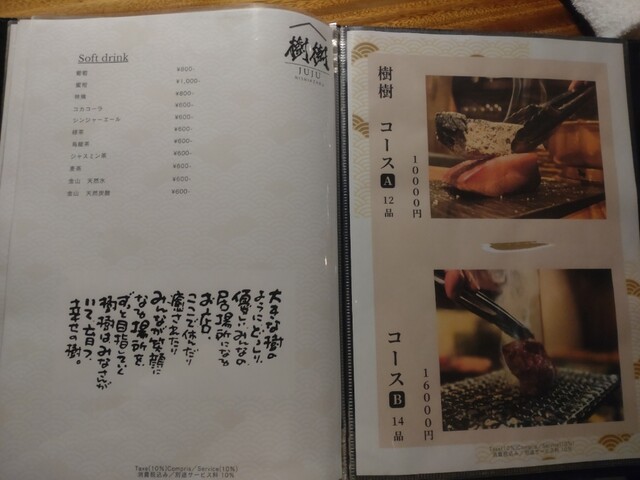 Soft drink
¥800-
¥1,000-
¥800-
コカコーラ ¥600-
ジンジャーエール ¥600-
緑茶 ¥600-
烏龍茶 ¥600-
ジャスミン茶 ¥600-
麦茶 ¥600-
天然水 ¥600-
天然炭酸 ¥600-
樹樹
JUJU
大きな樹の
ようにどっしり、
優しいみんなの
居場所になる
お店。
ここで休んだり
癒されたり
みんなが笑顔に
なる場所を
ずっと目指していく
樹樹はみなさんが
いて育つ、
幸せの樹。
Taxe(10%)Compris/Service(10%)
消費税込み/別途サービス料 10%
樹樹 コースA 12品
10000円
コースB 14品
16000円
Taxe(10%)Compris/Service(10%)
消費税込み/別途サービス料 10%